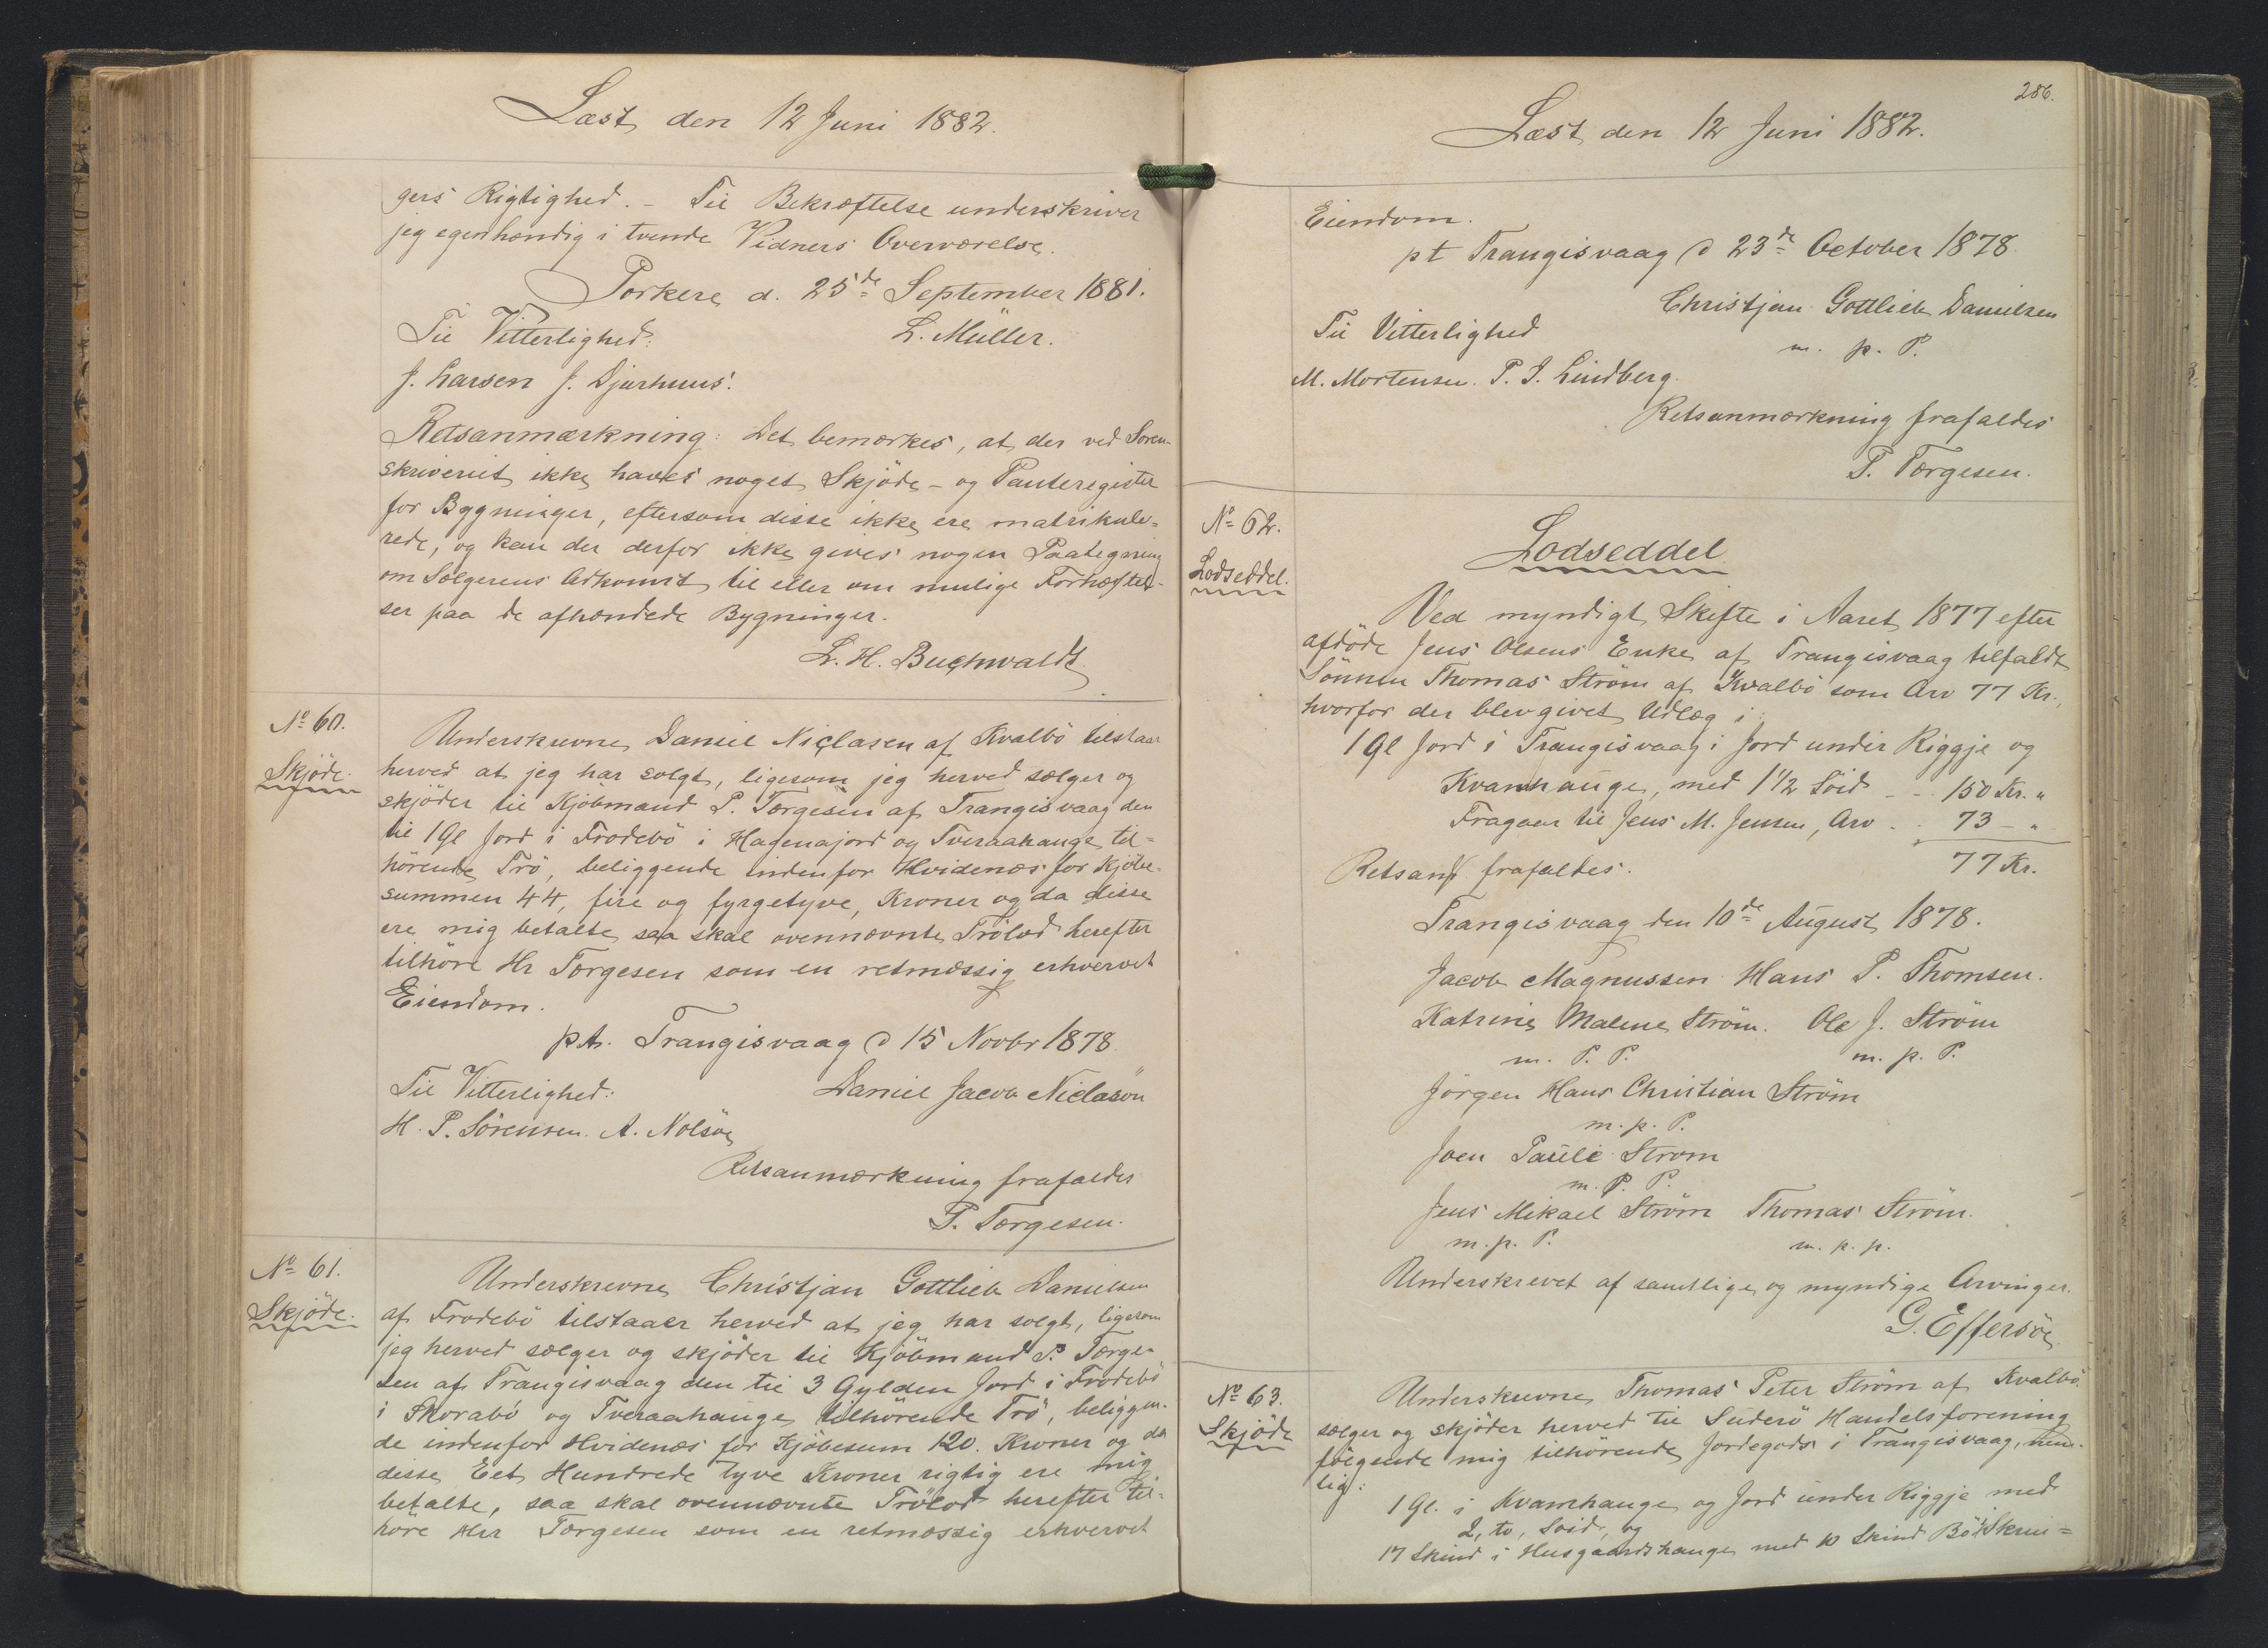 Læst den 12 Juni 1882.
gers Rigtighed. - Til Bekræftelse underskriver
jeg egenhændig i tvende Vidners Overværelse.
Porkere d. 25de September 1881.
Til Vitterlighed: L. Müller.
J. Larsen J. Djurhuus.
Retsanmærkning: Det bemærkes, at der ved Soren-
skriveriet ikke haves noget Skjöde- og Panteregister
for Bygninger, eftersom disse ikke ere matrikule-
rede, og kan der derfor ikke gives nogen Paategning
om Sælgerens Adkomst til eller om mulige Forhæftel-
ser paa de afhændede Bygninger.
L. H. Buchwaldt
No 60.
Skjöde.
Underskrevne Daniel Niclasen af Kvalbö tilstaar
herved at jeg har solgt, ligesom jeg herved sælger og
skjöder til Kjöbmand P. Torgesen af Trangisvaag den
til 1 Gl Jord i Frodebö i Hagenajord og Tveraahauge til-
hörende Trö, beliggende indenfor Hvidenæs for Kjöbe-
summen 44, fire og fyrgetyve, Kroner og da disse
ere mig betalte saa skal ovennævnte Trölod herefter
tilhöre Hr Torgesen som en retmæssig erhvervet
Eiendom.
pt. Trangisvaag d 15 Novbr 1878.
Til Vitterlighed: Daniel Jacob Niclasön
H. P. Sörensen. A. Nolsöe
Retsanmærkning frafaldes
P. Torgesen.
No 61.
Skjöde.
Underskrevne Christjan Gottlieb Danielsen
af Frodebö tilstaaer herved at jeg har solgt, ligesom
jeg herved sælger og skjöder til Kjöbmand P. Torge-
sen af Trangisvaag den til 3 Gylden Jord i Frodebö
i Skorabö og Tveraahauge tilhörende Trö, beliggen-
de indenfor Hvidenæs for Kjöbesum 120. Kroner og da
disse Eet Hundrede tyve Kroner rigtig ere mig
betalte, saa skal ovennævnte Trölod herefter til-
höre Hr Torgesen som en retmæssig erhvervet
286.
Læst den 12 Juni 1882.
Eiendom.
pt Trangisvaag d 23de October 1878.
Christjan Gottlieb Danielsen
Til Vitterlighed m. p. P.
M. Mortensen. P. J. Lindberg.
Retsanmærkning frafaldes
P. Torgesen.
No 62.
Lodseddel.
Lodseddel
Ved myndigt Skifte i Aaret 1877 efter
afdöde Jens Olsens Enke af Trangisvaag tilfaldt
Sönnen Thomas Ström af Kvalbö som Arv 77 Kr.,
hvorfor der blev givet Udlæg i:
1 Gl Jord i Trangisvaag i Jord under Riggje og
Kvanhauge, med 1 1/2 Söid - - 150 Kr. "
Fragaar til Jens M. Jensen, Arv . . 73 - "
77 Kr.
Retsanm frafaldes.
Trangisvaag den 10de August 1878.
Jacob Magnussen Hans P. Thomsen.
Katrine Malene Ström. Ole J. Ström
m. P. P. m. p. P.
Jörgen Hans Christian Ström
m. p. P.
Joen Pauli Strøm
m. P. P.
Jens Mikael Ström Thomas Ström.
m. p. P. m. p. p.
Underskrevet af samtlige og myndige Arvinger.
G. Effersöe
No 63.
Skjöde
Underskrevne Thomas Peter Ström af Kvalbö
sælger og skjöder herved til Suderö Handelsforening
fölgende mig tilhörende Jordegods i Trangisvaag, nem-
lig:
1 Gl. i Kvanhauge og Jord under Riggje med
2, to, Söid, og
17 Skind i Husgaardshauge med 10 Skind Bö i Skrui=